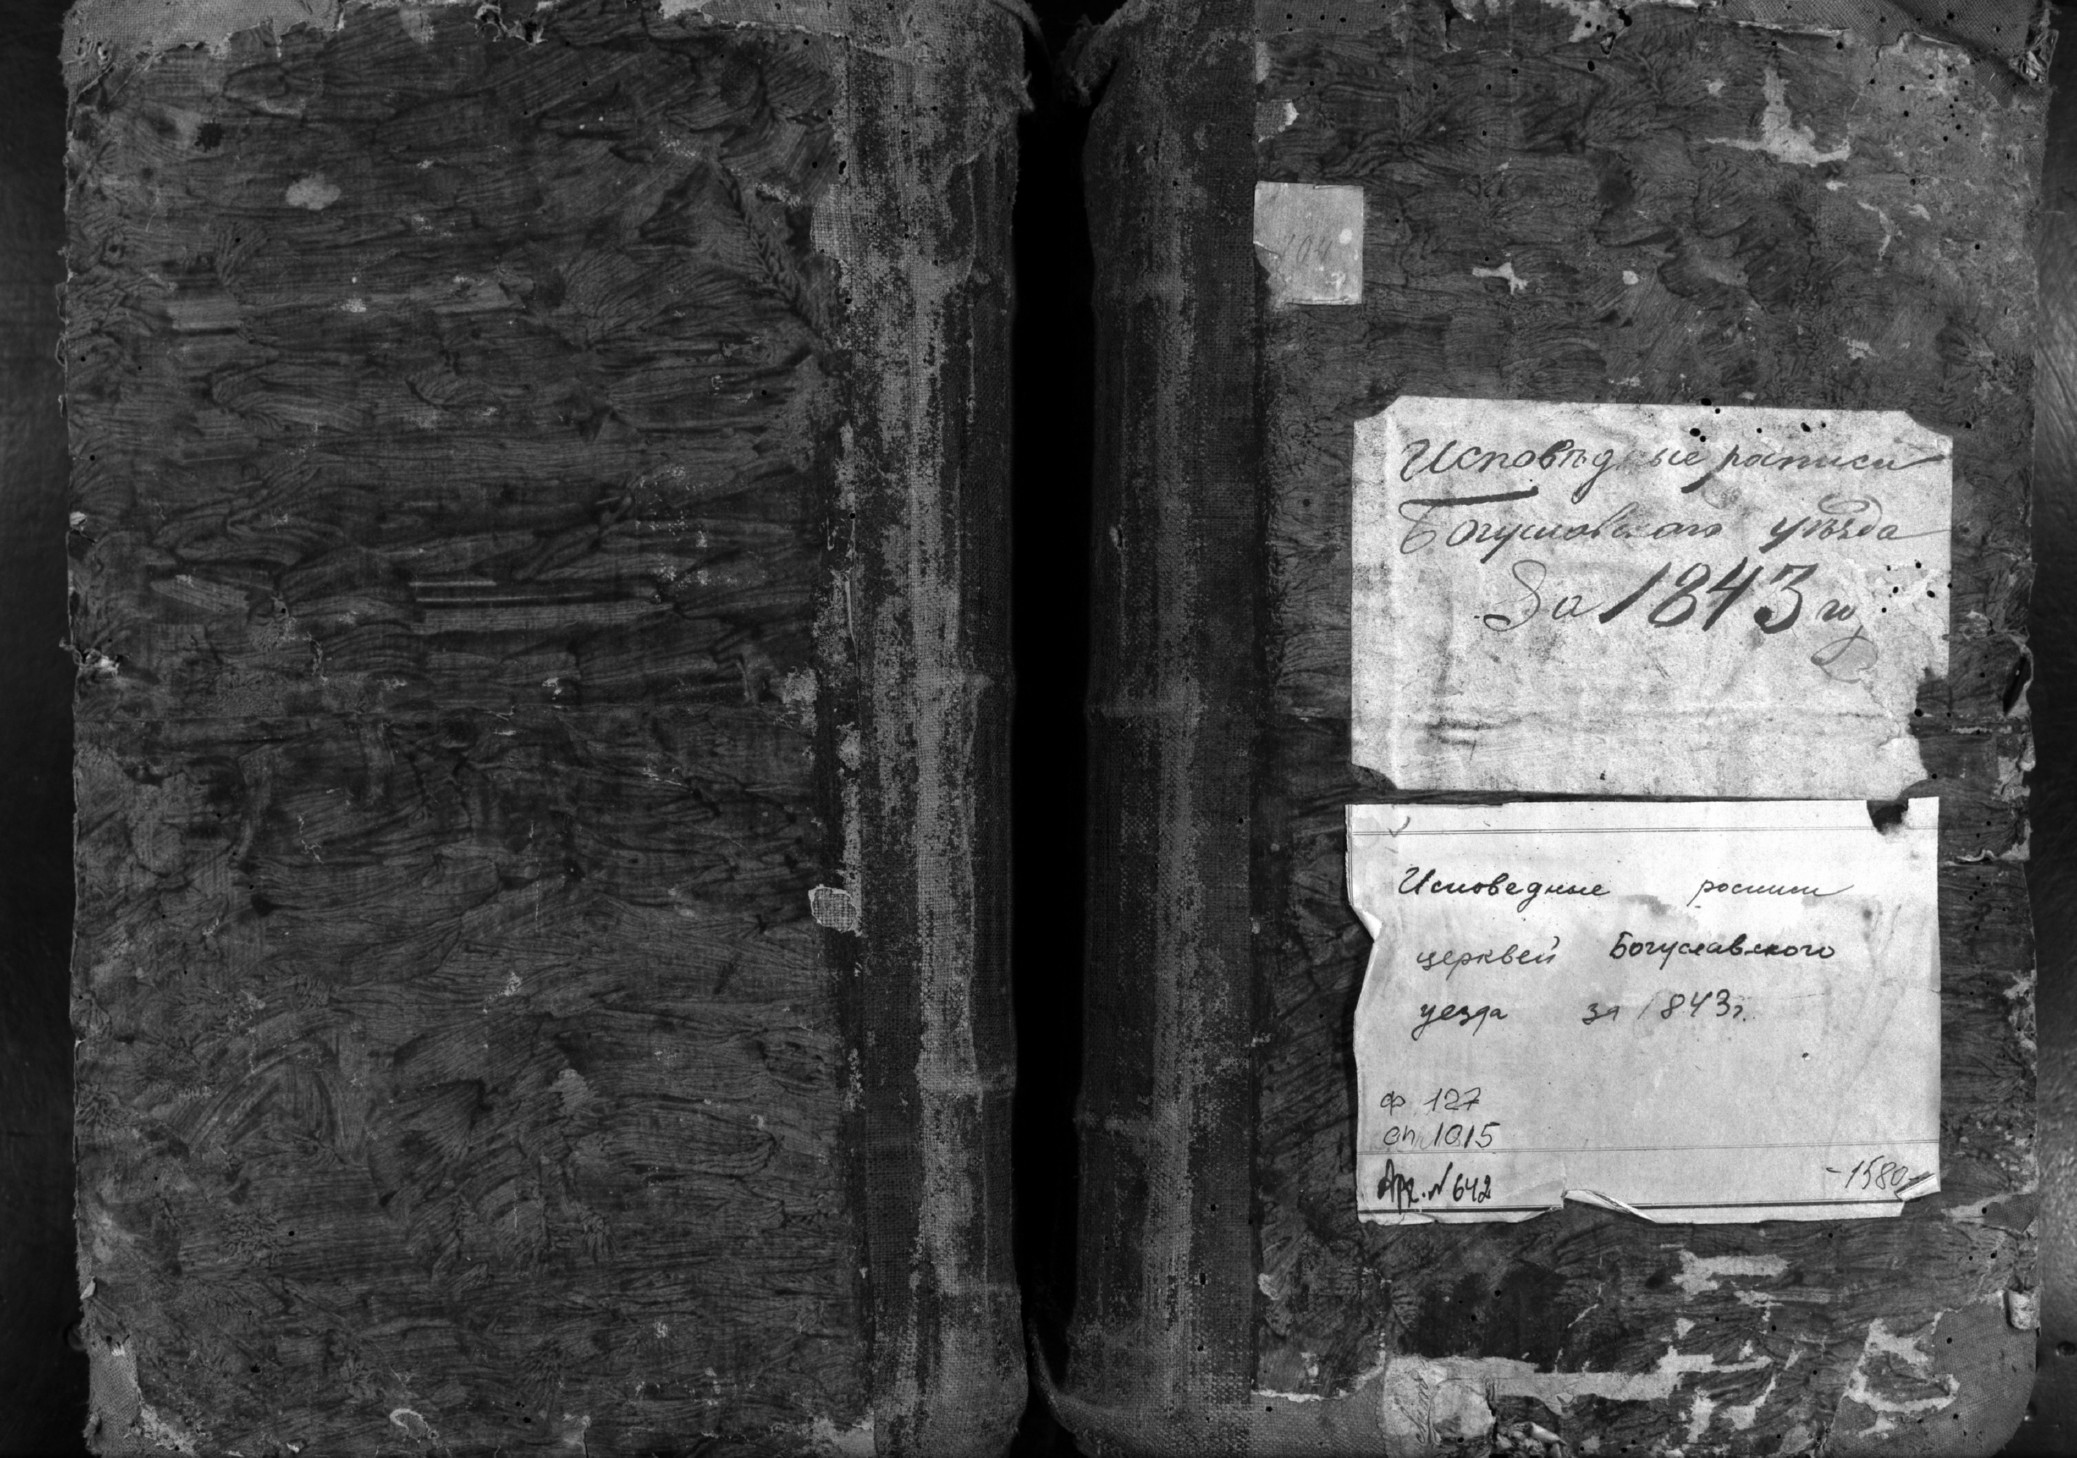 104
Исповѣдные росписи
Богуславскаго уѣзда
За 1843 го
Исповедные росписи
церквей Богуславского
уезда за 1843г.
ф 127
оп. 1015
Арх. № 642 -1580